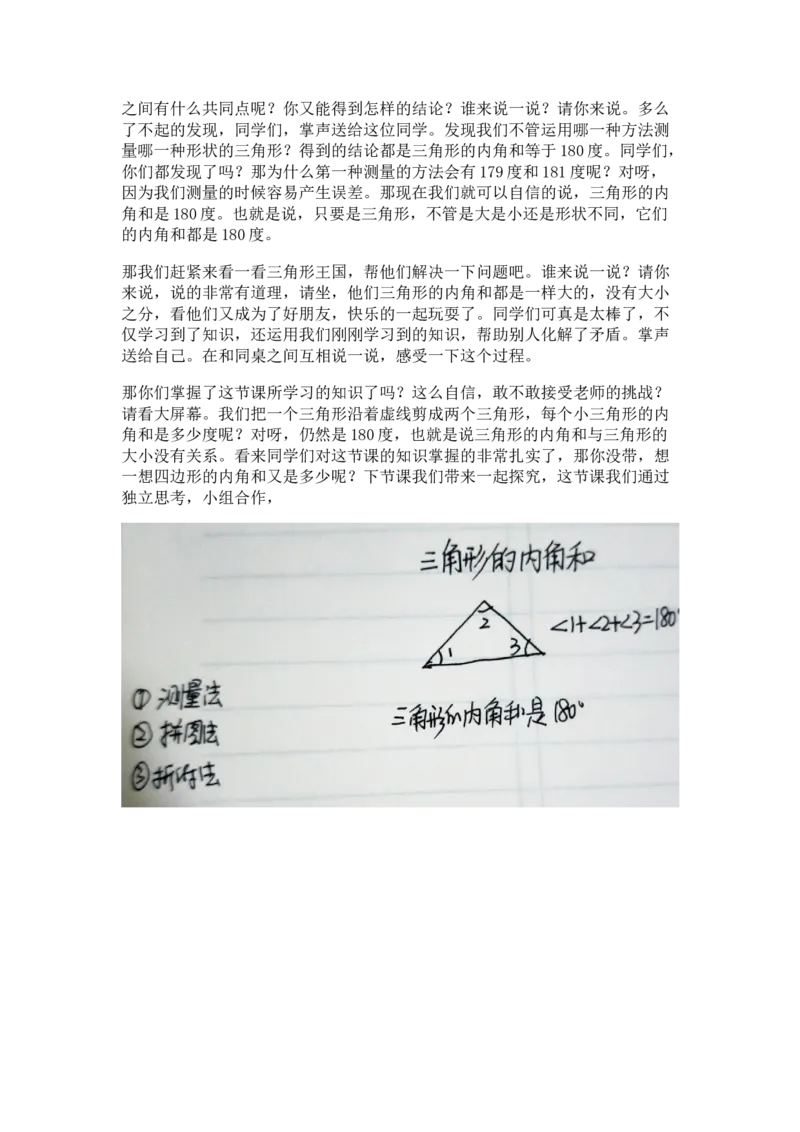 之间有什么共同点呢？你又能得到怎样的结论？谁来说一说？请你来说。多么
了不起的发现，同学们，掌声送给这位同学。发现我们不管运用哪一种方法测
量哪一种形状的三角形？得到的结论都是三角形的内角和等于 180 度。同学们，
你们都发现了吗？那为什么第一种测量的方法会有 179 度和 181 度呢？对呀，
因为我们测量的时候容易产生误差。那现在我们就可以自信的说，三角形的内
角和是 180 度。也就是说，只要是三角形，不管是大是小还是形状不同，它们
的内角和都是 180 度。
那我们赶紧来看一看三角形王国，帮他们解决一下问题吧。谁来说一说？请你
来说，说的非常有道理，请坐，他们三角形的内角和都是一样大的，没有大小
之分，看他们又成为了好朋友，快乐的一起玩耍了。同学们可真是太棒了，不
仅学习到了知识，还运用我们刚刚学习到的知识，帮助别人化解了矛盾。掌声
送给自己。在和同桌之间互相说一说，感受一下这个过程。
那你们掌握了这节课所学习的知识了吗？这么自信，敢不敢接受老师的挑战？
请看大屏幕。我们把一个三角形沿着虚线剪成两个三角形，每个小三角形的内
角和是多少度呢？对呀，仍然是 180 度，也就是说三角形的内角和与三角形的
大小没有关系。看来同学们对这节课的知识掌握的非常扎实了，那你没带，想
一想四边形的内角和又是多少呢？下节课我们带来一起探究，这节课我们通过
独立思考，小组合作，
三角形的内角和
2
∠1+∠2+∠3=180°
1 3
① 测量法
三角形的内角和是180°
② 拼图法
③ 折叠法